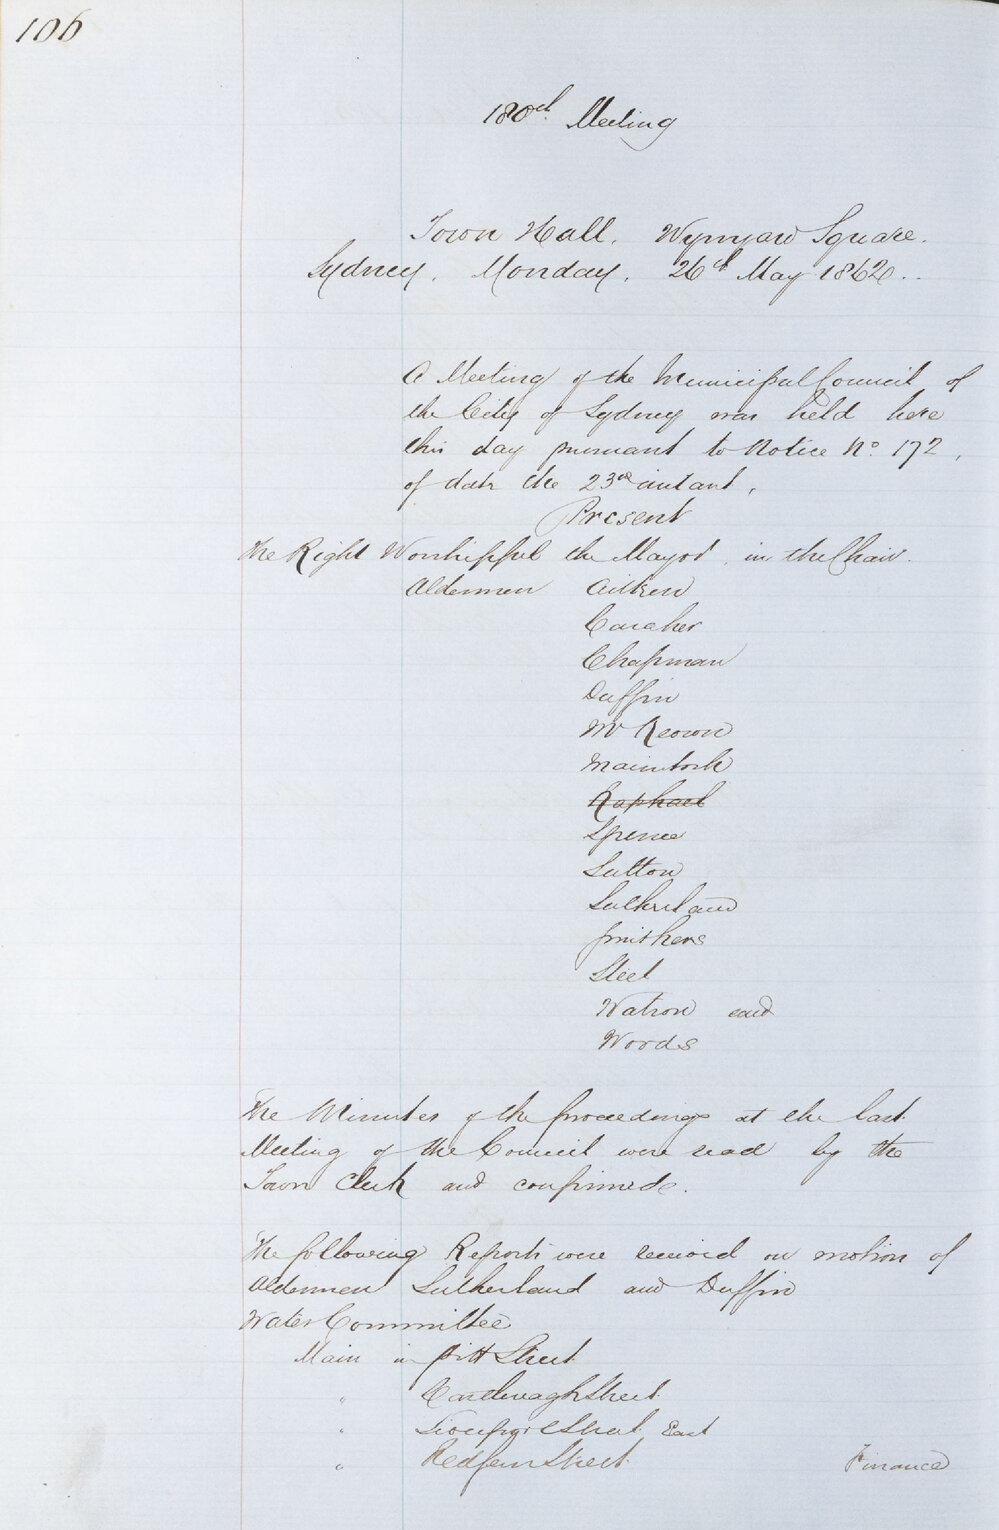 106
180th Meeting
Town Hall. Wynyard Square.
Sydney. Monday. 26th May 1862..
A Meeting of the Municipal Council of
the City of Sydney was held here
this day pursuant to Notice No. 172,
of date the 23rd instant.
Present
The Right Worshipful the Mayor, in the Chair.
Aldermen Aitken
Caraher
Chapman
Duffin
McKeown
Macintosh
Raphael
Spence
Sutton
Sutherland
Smithers
Steel
Watson and
Woods
The Minutes of the proceedings at the last
Meeting of the Council were read by the
Town Clerk and confirmed.
The following Reports were received on motion of
Aldermen Sutherland and Duffin
Water Committee
Main in Pitt Street
" Castlereagh Street.
" Street East
" Redfern Street.
Finance